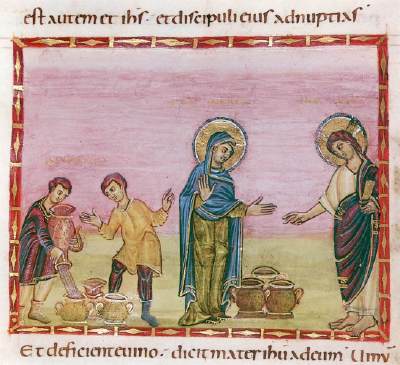 est autem et ihs · et discipuli eius ad nuptias
Et deficiente uino · dicit mater ihu ad eum